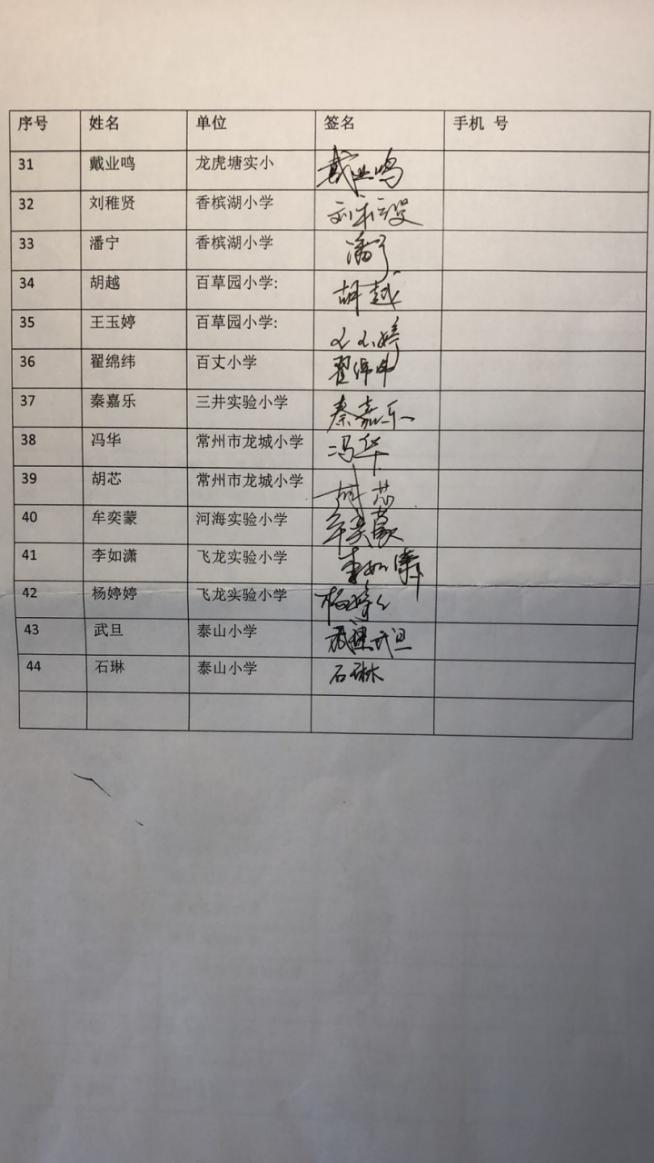 序号 姓名 单位 签名 手机 号
31 戴业鸣 龙虎塘实小 戴业鸣
32 刘稚贤 香槟湖小学 刘稚贤
33 潘宁 香槟湖小学 潘宁
34 胡越 百草园小学: 胡越
35 王玉婷 百草园小学: 王玉婷
36 翟绵纬 百丈小学 翟绵纬
37 秦嘉乐 三井实验小学 秦嘉乐
38 冯华 常州市龙城小学 冯华
39 胡芯 常州市龙城小学 胡芯
40 牟奕蒙 河海实验小学 牟奕蒙
41 李如潇 飞龙实验小学 李如潇
42 杨婷婷 飞龙实验小学 杨婷婷
43 武旦 泰山小学 武旦
44 石琳 泰山小学 石琳